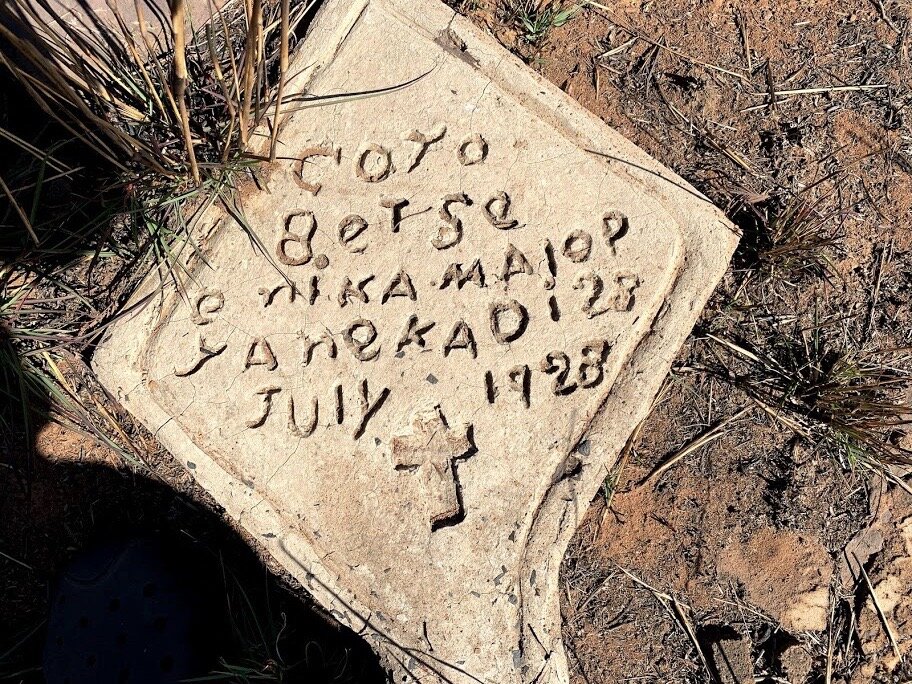 COTO
BeTSe
O NIKAMAJOR
YANEKADI 28
JULY 1928